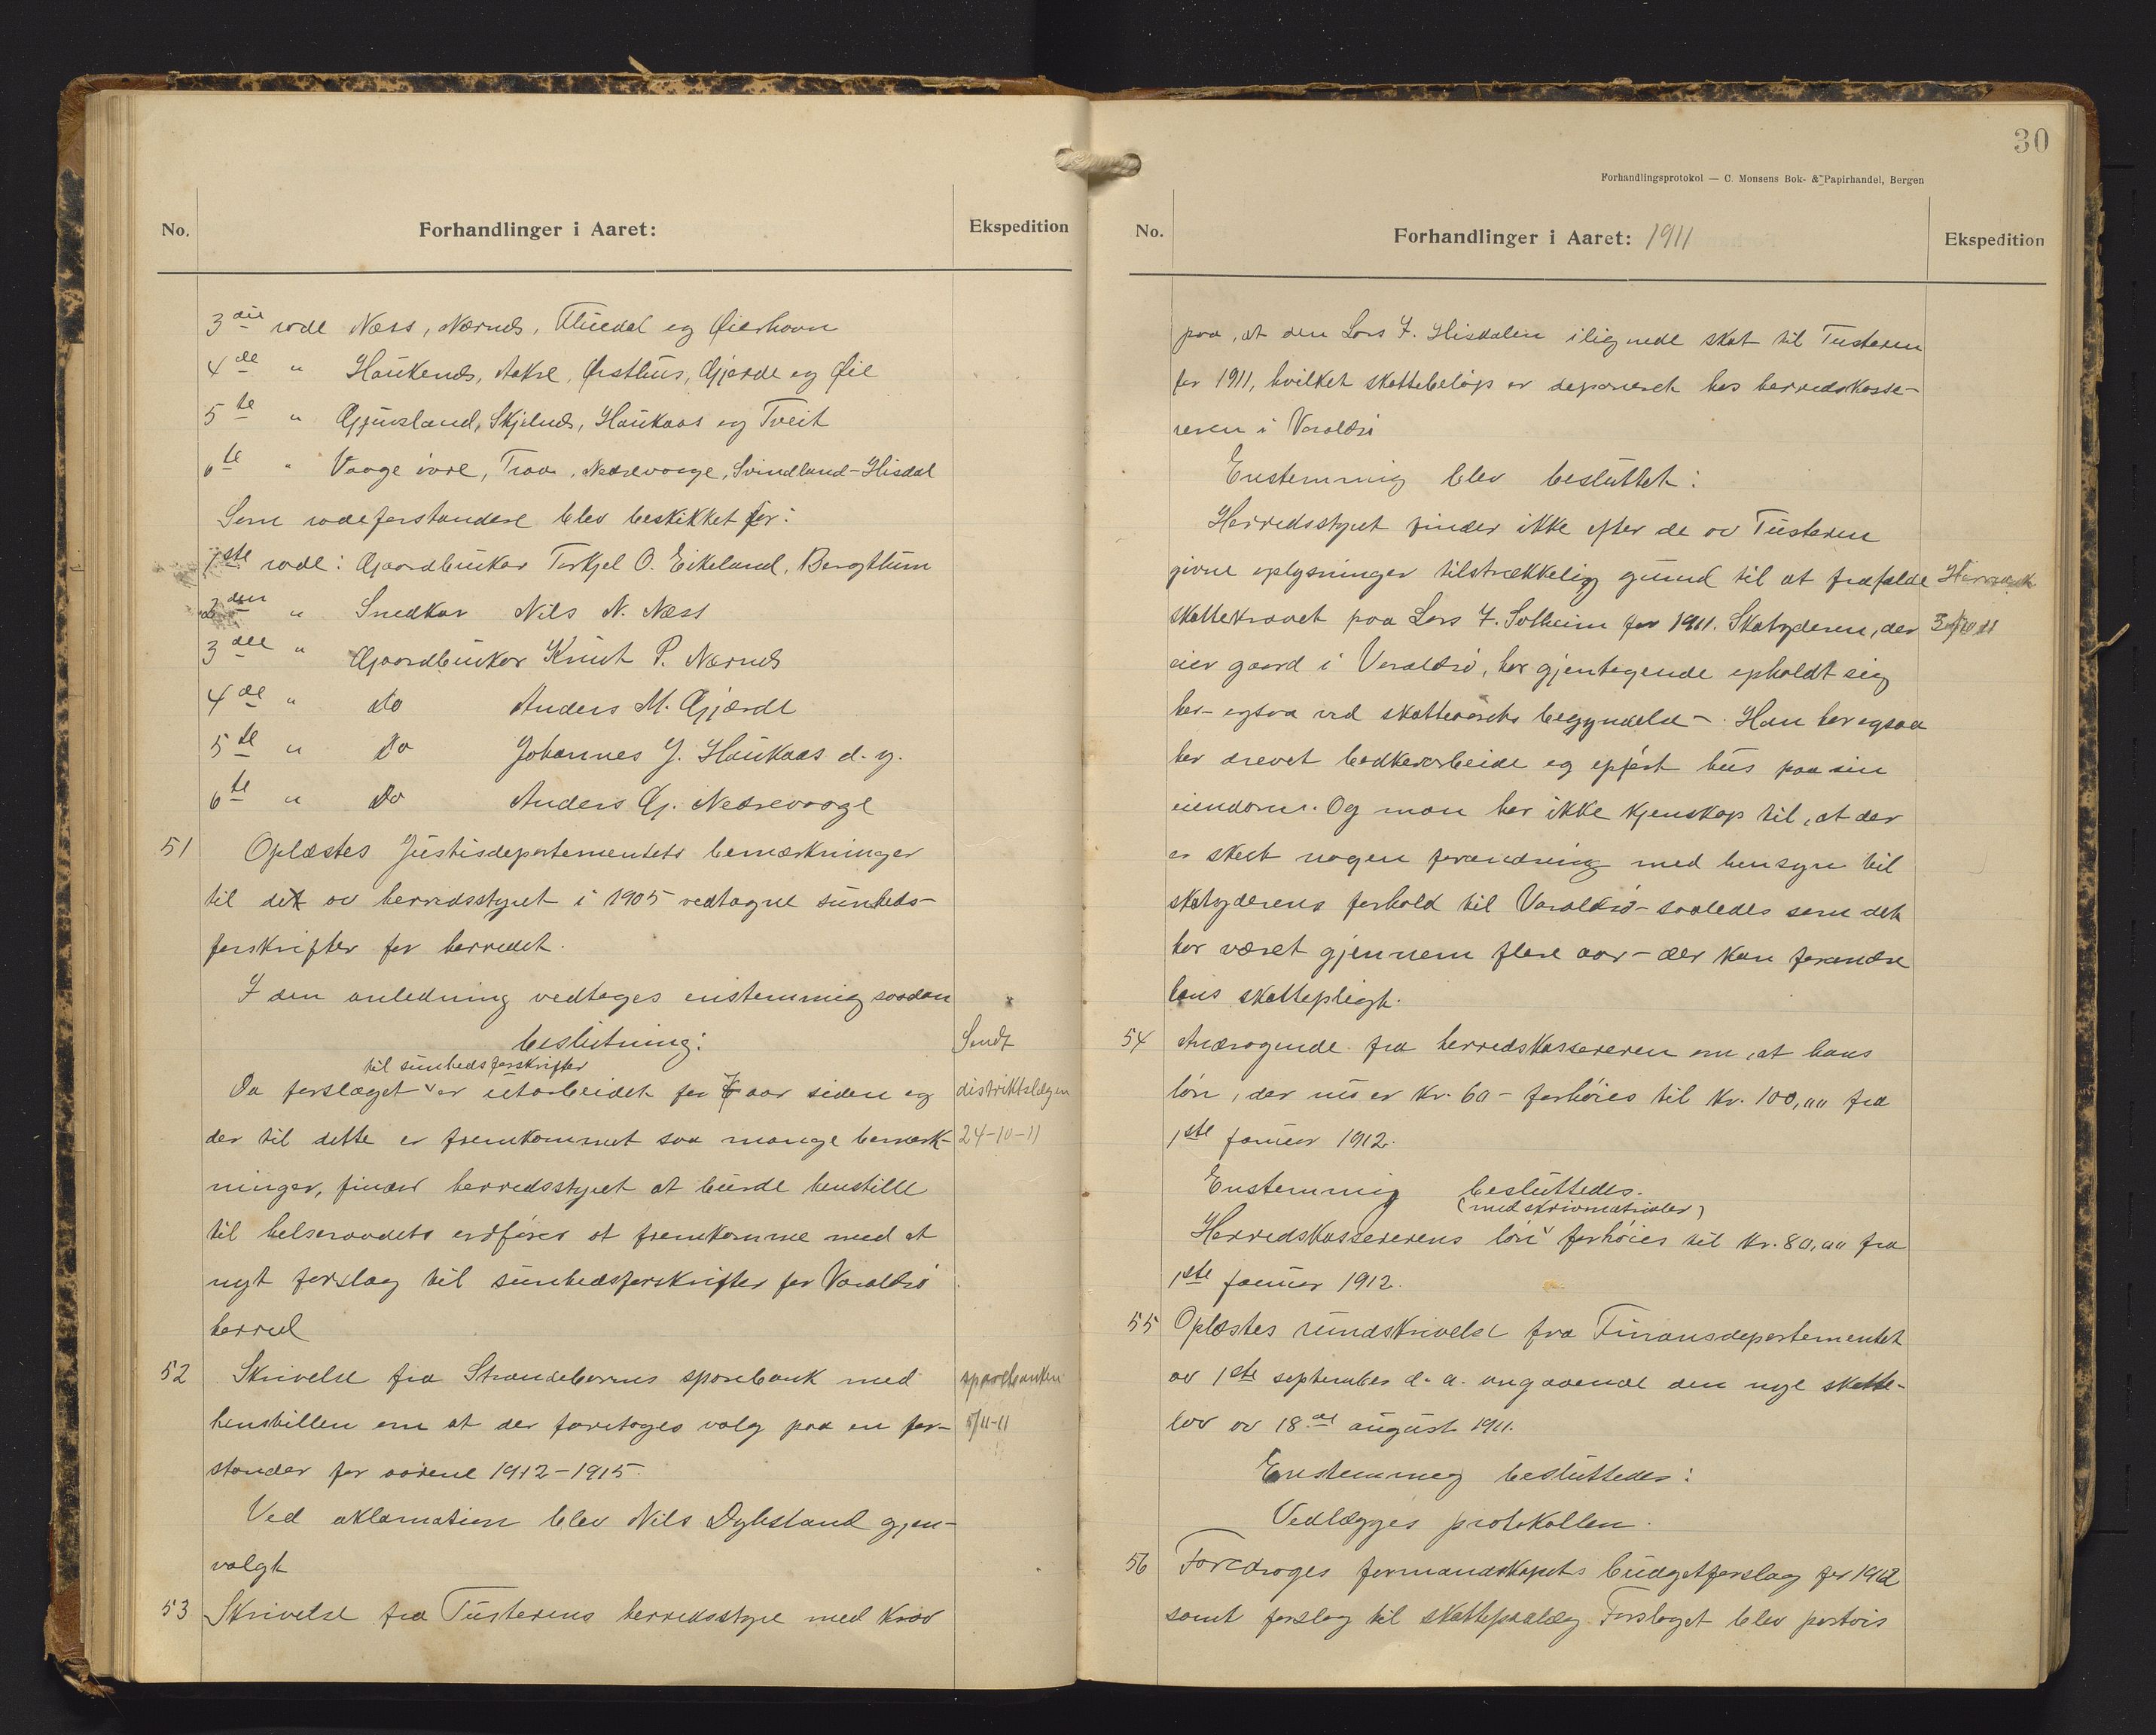 No.
Forhandlinger i Aaret:
Ekspedition
3die rode Næss, Nærnes, Fluedal og Øierhavn
4de " Haukenes, Aakre, Ørsthus, Gjærde og Øie
5te " Gjuvsland, Skjelnes, Haukaas og Tveit
6te " Vaage ivre, Traa, Nedrevaage, Svindland-Hisdal
Som rodeforstandere blev beskikket for:
1ste rode: Gaardbruker Torkjel O. Eikeland, Bergthun
2den " Snedker Nils N. Næss
3die " Gaardbruker Knut P. Nærnes
4de " do Anders M. Gjærde
5te " do Johannes J. Haukaas d. y.
6te " do Anders G. Nedrevaage
51 Oplæstes Justisdepartementets bemærkninger
til det av herredsstyret i 1905 vedtagne sunheds-
forskrifter for herredet.
I den anledning vedtages enstemmig saadan
beslutning:
Sendt
til sunhedsforskrifter
Da forslaget er utarbeidet for 7 aar siden og
distriktslægen
der til dette er fremkommet saa mange bemærk-
24-10-11
ninger, finder herredsstyret at burde henstille
til helseraadets ordfører at fremkomme med et
nyt forslag til sunhedsforskrifter for Varaldsø
herred
52 Skrivelse fra Strandebarms sparebank med
sparebanken
henstillen om at der foretages valg paa en for-
5/11-11
stander for aarene 1912-1915.
Ved aklamation blev Nils Dybsland gjen-
valgt
53 Skrivelse fra Tusterens herredsstyre med krav
30
Forhandlingsprotokol — C. Monsens Bok- & Papirhandel, Bergen
No.
Forhandlinger i Aaret: 1911
Ekspedition
paa, at den Lars J. Hisdalen ilignede skat til Tusteren
for 1911, hvilket skattebeløp er deponeret hos herredskasse-
reren i Varaldsø
Enstemmig blev besluttet:
Herredsstyret finder ikke efter de av Tusteren
givne oplysninger tilstrækkelig grund til at frafalde
skattekravet paa Lars J. Solheim for 1911. Skatyderen, der
eier gaard i Varaldsø, har gjentagende opholdt sig
her- ogsaa ved skatteaarets begyndelse -. Han har ogsaa
her drevet bødkerarbeide og opført hus paa sin
eiendom. Og man har ikke kjenskap til, at der
er skeet nogen forandring med hensyn til
skatyderens forhold til Varaldsø - saaledes som det
har været gjennem flere aar - der kan forandre
hans skattepligt.
54 Andragende fra herredskassereren om, at hans
løn, der nu er kr. 60 - forhøies til kr. 100,00 fra
1ste januar 1912.
Enstemmig besluttedes.
(med skrivmatrialer)
Herredskassererens løn forhøies til kr. 80,00 fra
1ste januar 1912.
55 Oplæstes rundskrivelse fra Finansdepartementet
av 1ste september d. a. angaaende den nye skatte-
lov av 18de august 1911.
Enstemmig besluttedes:
Vedlægges protokollen.
56 Foredroges formandskapets budgetforslag for 1912
samt forslag til skattepaalæg. Forslaget blev postvis